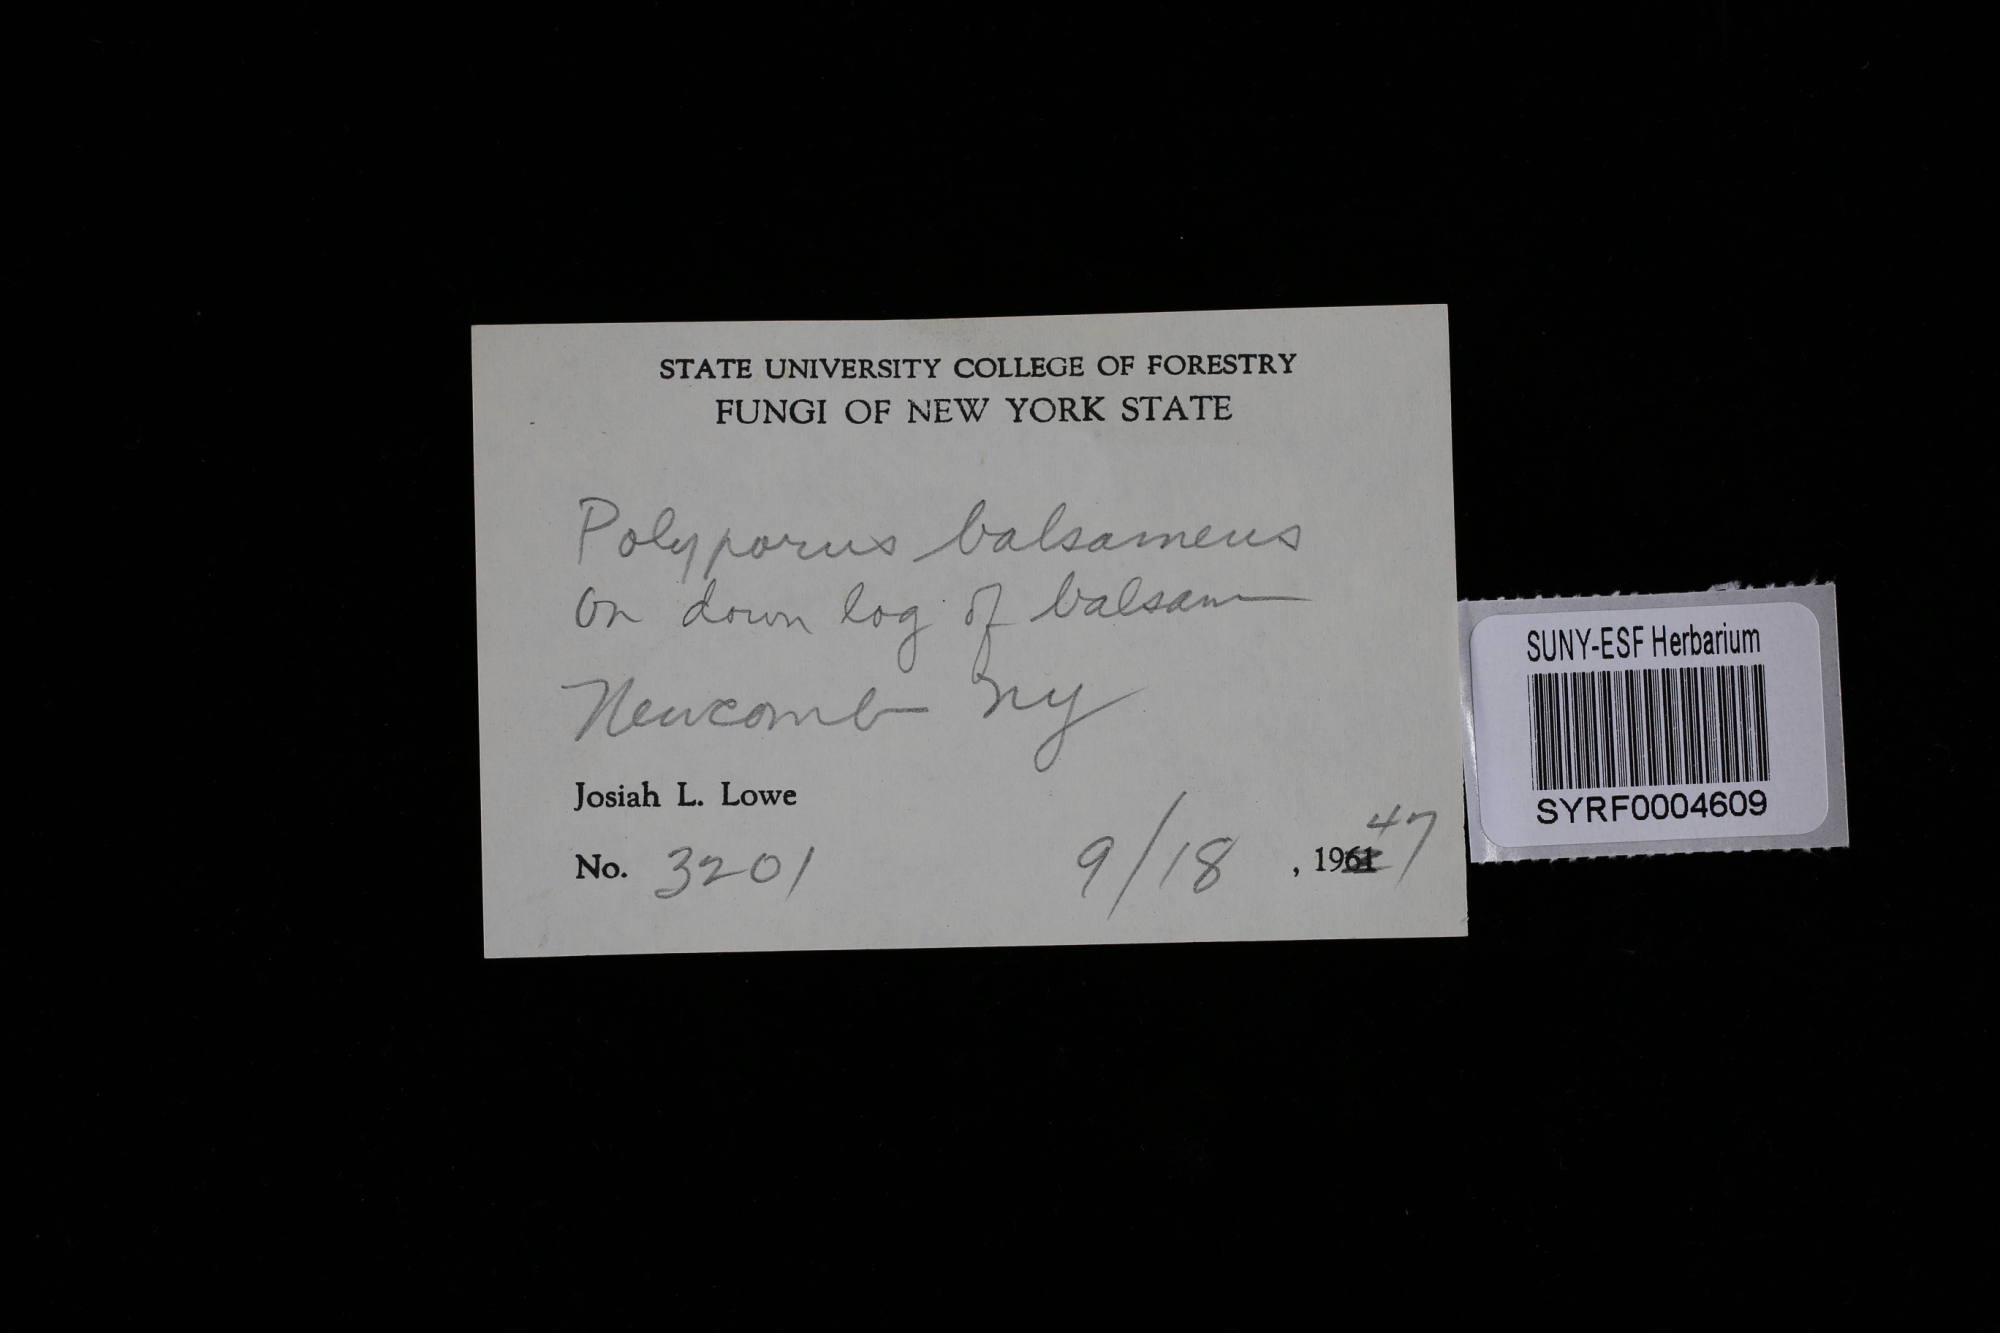 STATE UNIVERSITY COLLEGE OF FORESTRY
FUNGI OF NEW YORK STATE
Polyporus balsameus
on down log of balsam
Newcomb NY
Josiah L. Lowe
No. 3201 9/18 , 1961 47
SUNY-ESF Herbarium
SYRF0004609